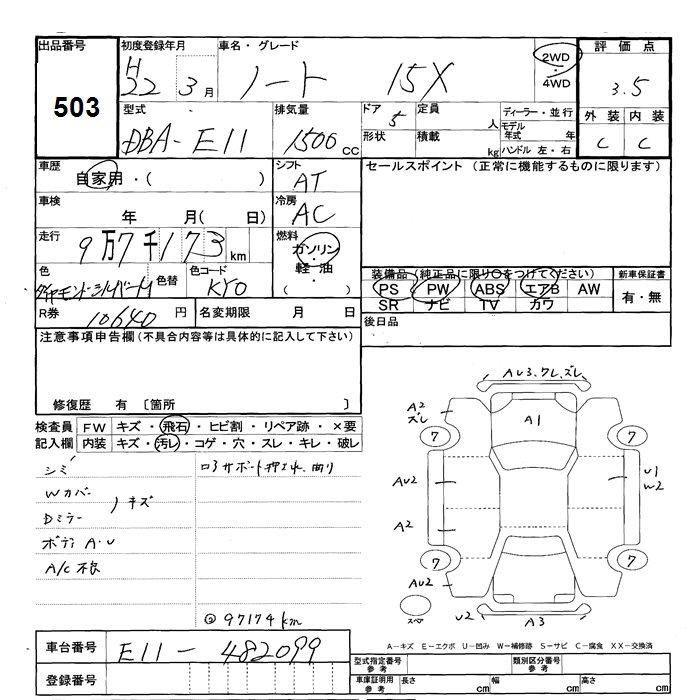 出品番号 503
初度登録年月 H22 3月
車名・グレード ノート 15X
2WD・4WD
評価点 3.5
外装 内装
C C
型式 DBA-E11
排気量 1500 cc
ドア 5 定員 人
形状 積載 kg
ディーラー・並行
モデル年式 年
ハンドル 左・右
車歴 自家用・( )
シフト AT
セールスポイント (正常に機能するものに限ります)
車検 年 月( 日)
冷房 AC
走行 9万7千173km
燃料 ガソリン・軽油・
色 ダイヤモンドシルバーM 色替
色コード KY0
装備品(純正品に限り○をつけてください) 新車保証書
PS PW ABS エアB AW 有・無
SR ナビ TV カワ
R券 10640円
名変期限 月 日
後日品
注意事項申告欄(不具合内容等は具体的に記入して下さい)
修復歴 有〔箇所 〕
検査員記入欄
FW キズ・飛石・ヒビ割・リペア跡・×要
内装 キズ・汚レ・コゲ・穴・スレ・キレ・破レ
シミ
Wカバー
Dミラー
キズ
ボディ A・U
A/C不良
サポート押エ 曲り
97174km
AU3、ワレ、ズレ
A2 ズレ
A1
7 7
AU2
U1 W2
A2
7 7
AU2
U2 A3
A-キズ E-エクボ U-凹み W-補修跡 S-サビ C-腐食 XX-交換済
車台番号 E11-482099
登録番号
型式指定番号 参考
類別区分番号 参考
車庫証明用 参考 長さ cm 幅 cm 高さ cm